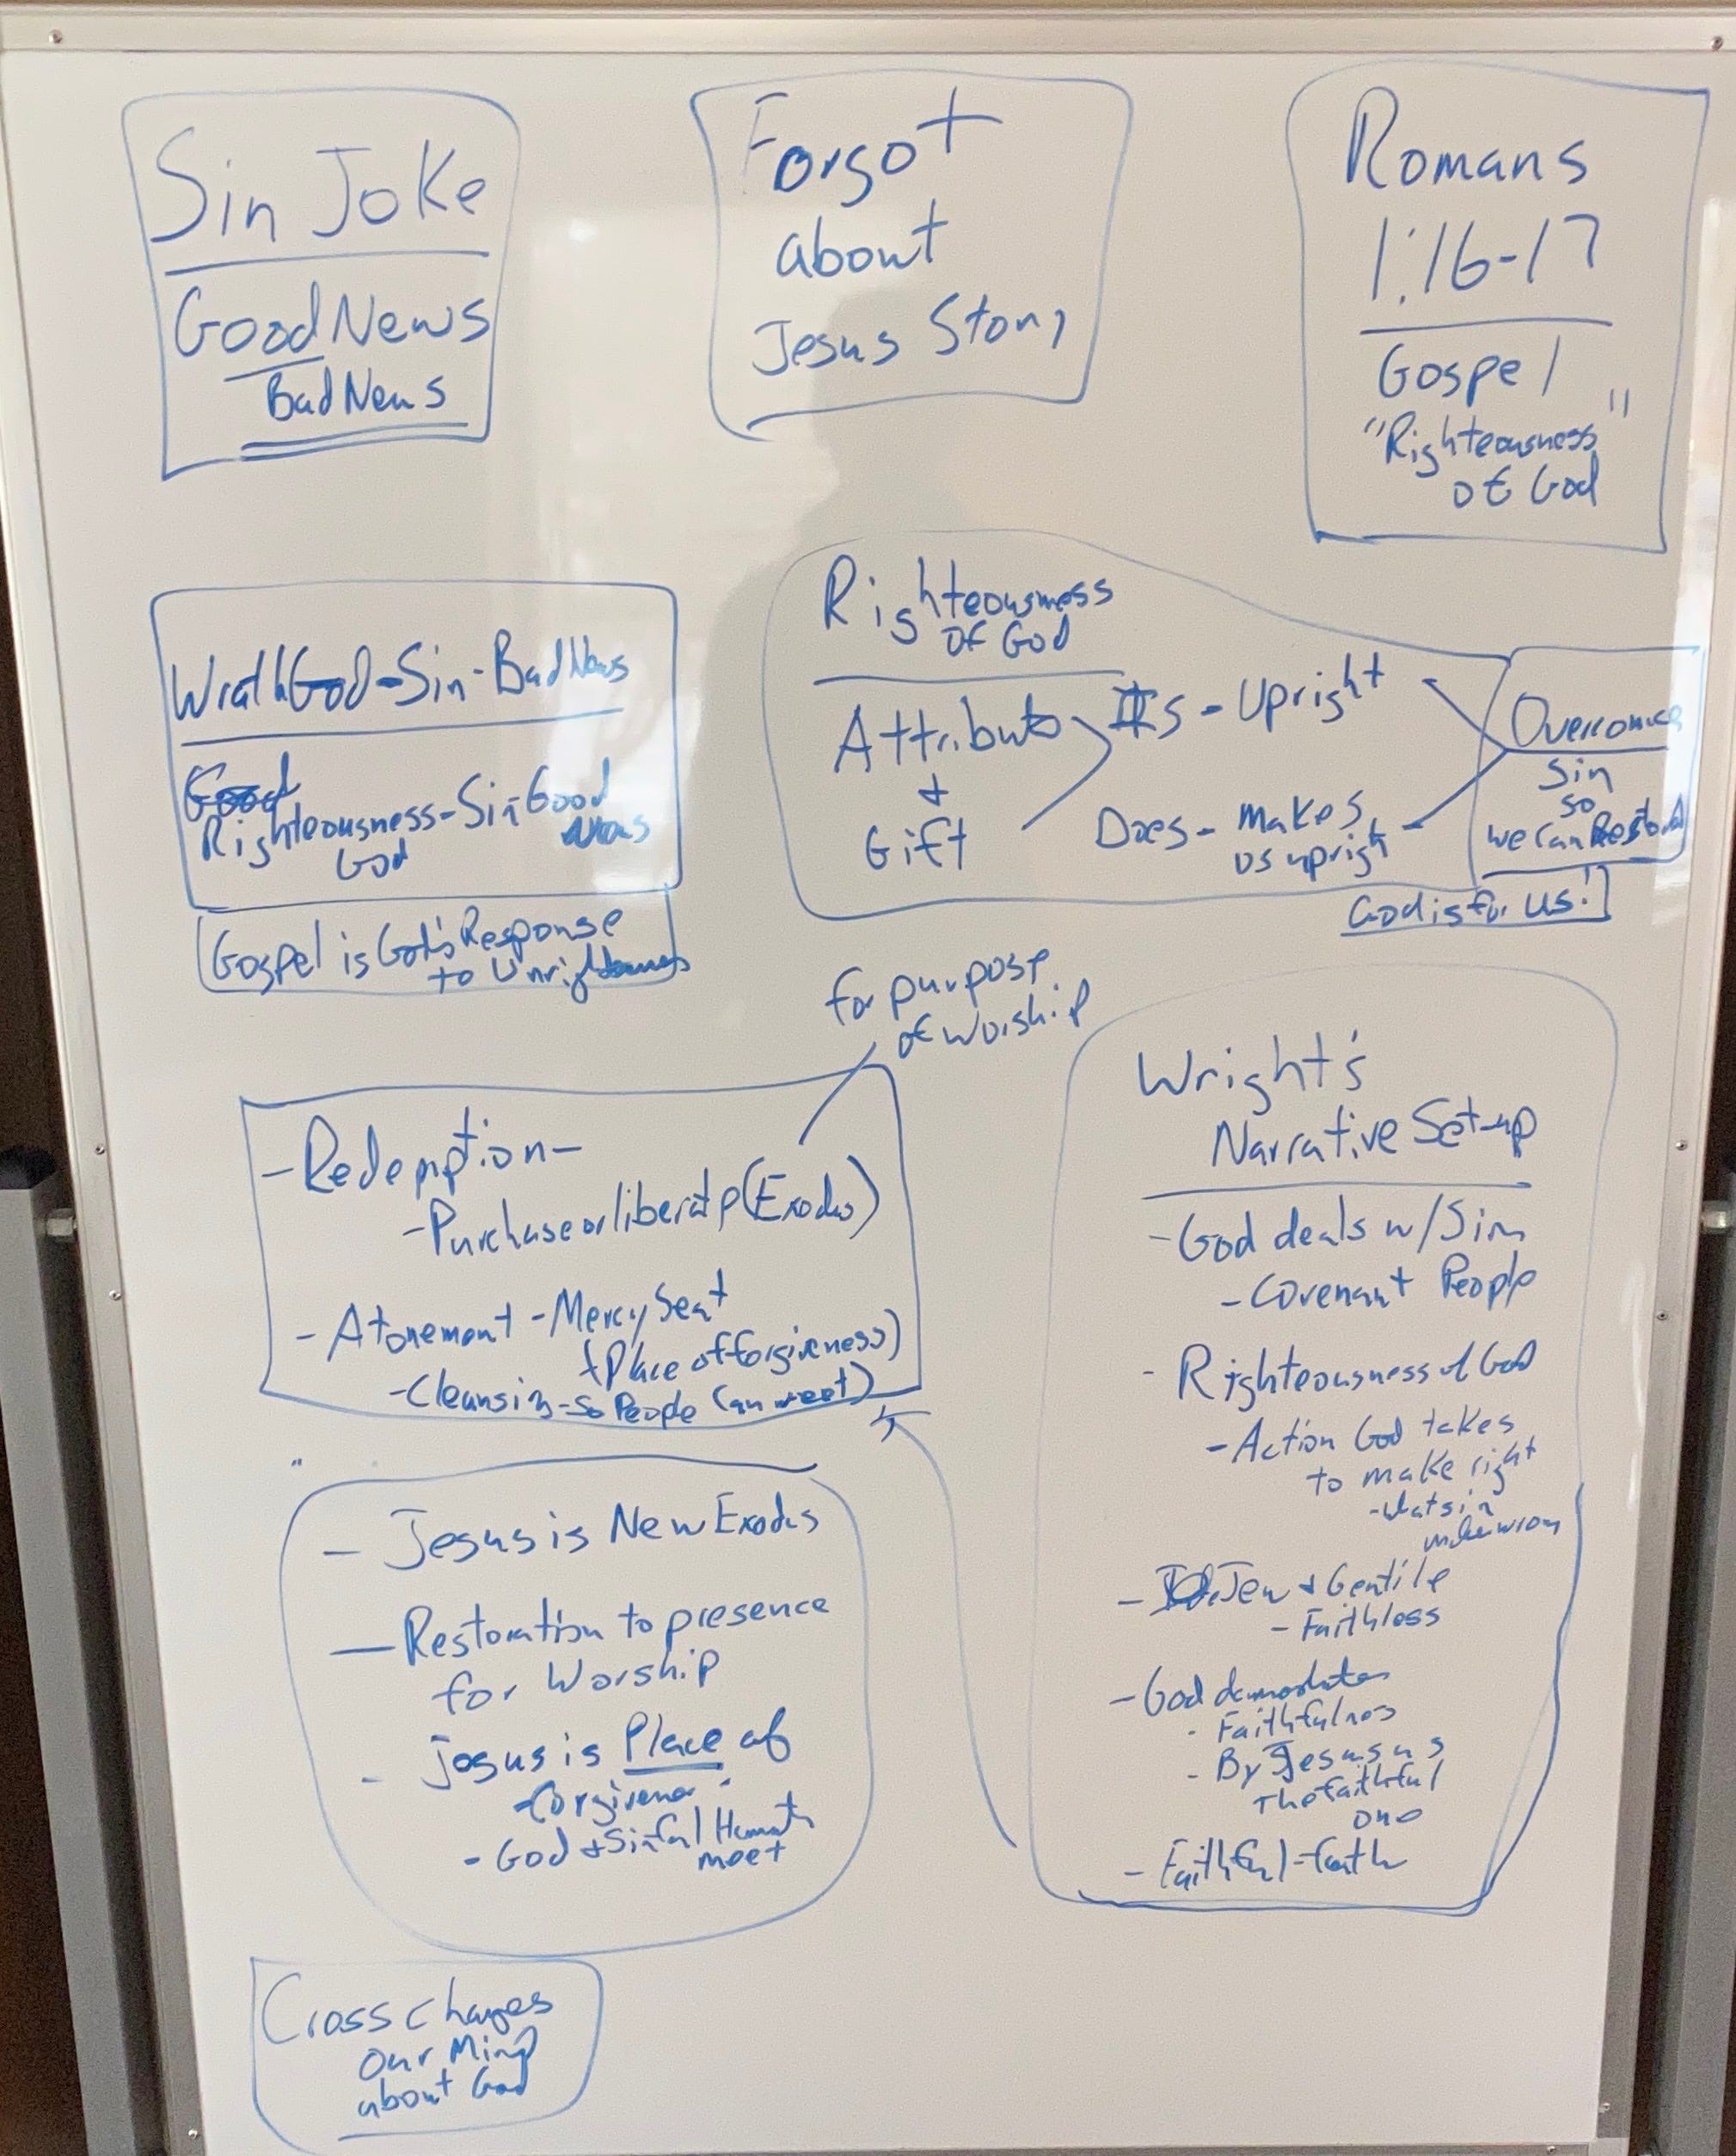 Sin Joke
Good News
Bad News
Forgot
about
Jesus Story
Romans
1:16-17
Gospel
"Righteousness"
of God
Wrath God - Sin - Bad News
Good
Righteousness - Sin - Good
God News
Gospel is God's Response
to Unrighteousness
Righteousness
of God
Attribute
+
Gift
Is - Upright
Does - makes
us upright
Overcomes
Sin
so
we can Restored
God is for us!
for purpose
of worship
- Redemption -
- Purchase or liberate (Exodus)
- Atonement - Mercy Seat
(Place of forgiveness)
- Cleansing - so People can meet)
- Jesus is New Exodus
- Restoration to presence
for Worship
- Jesus is Place of
- forgiveness
- God + Sinful Humanity
meet
Cross changes
our Mind
about God
Wright's
Narrative Set-up
- God deals w/ Sin
- Covenant People
- Righteousness of God
- Action God takes
to make right
- what sin
makes wrong
- Jew + Gentile
- Faithless
- God demonstrates
- Faithfulness
- By Jesus
The faithful
one
- Faithful - faith